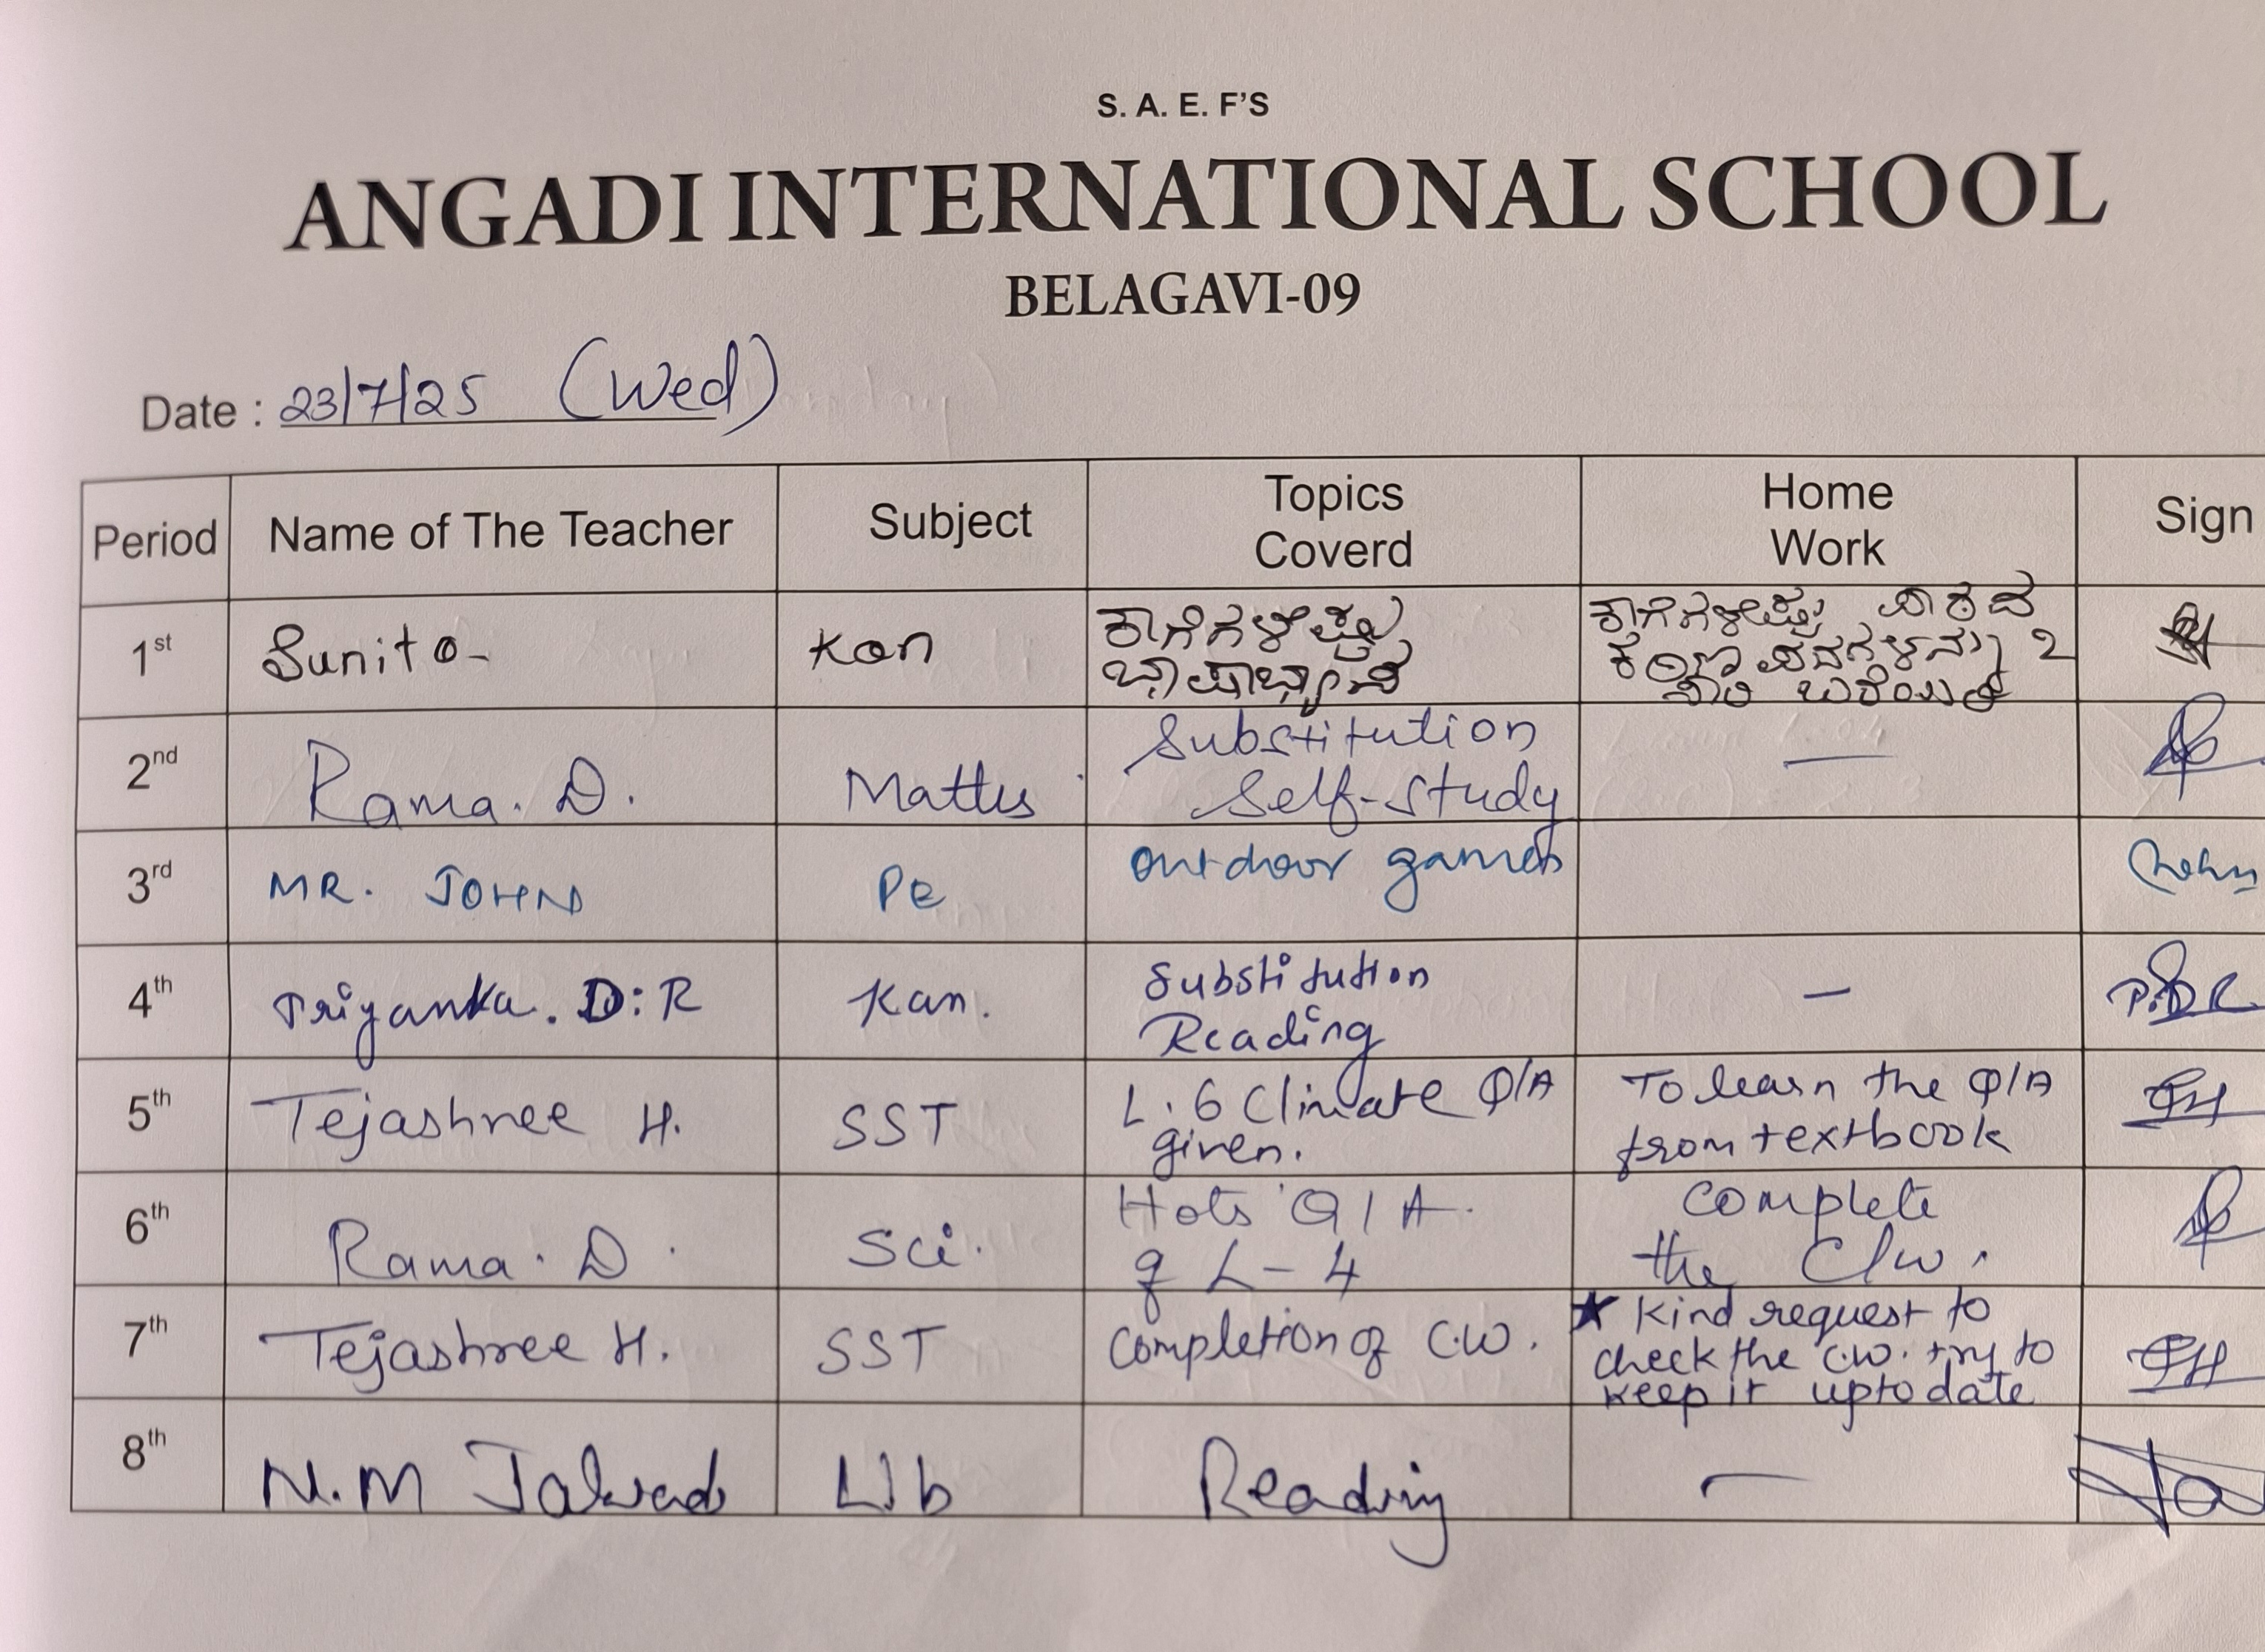 S. A. E. F'S
ANGADI INTERNATIONAL SCHOOL
BELAGAVI-09
Date : 23/7/25 (Wed)
Period
Name of The Teacher
Subject
Topics
Coverd
Home
Work
Sign
1st
Sunita
Kan
ಕಾಗೆಗಳೆಷ್ಟು
ಭಾಷಾಭ್ಯಾಸ
ಕಾಗೆಗಳೆಷ್ಟು ಪಾಠದ
ಪದಗಳನ್ನು 2
ಸಾರಿ ಬರೆಯಿರಿ
2nd
Rama. D.
Maths
Substitution
Self-study
—
3rd
MR. JOHN
PE
outdoor games
4th
Priyanka. D. R
Kan.
Substitution
Reading
—
P. D R
5th
Tejashree H.
SST
L. 6 Climate Q/A
given.
To learn the Q/A
from textbook
6th
Rama. D.
Sci.
Hots Q/A.
of L-4
complete
the C/w.
7th
Tejashree H.
SST
Completion of C.W.
★ Kind request to
check the C.W. try to
keep it upto date
8th
N.M Jalwad
Lib
Reading
—